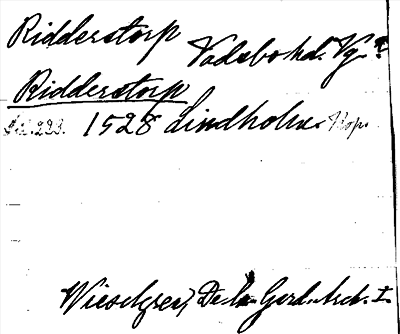 Ridderstorp Vadsbo hd. Vg?
Ridderstorp
1528 Lindholm. Kop.
Wieselgren, De la Gard. Arch. I